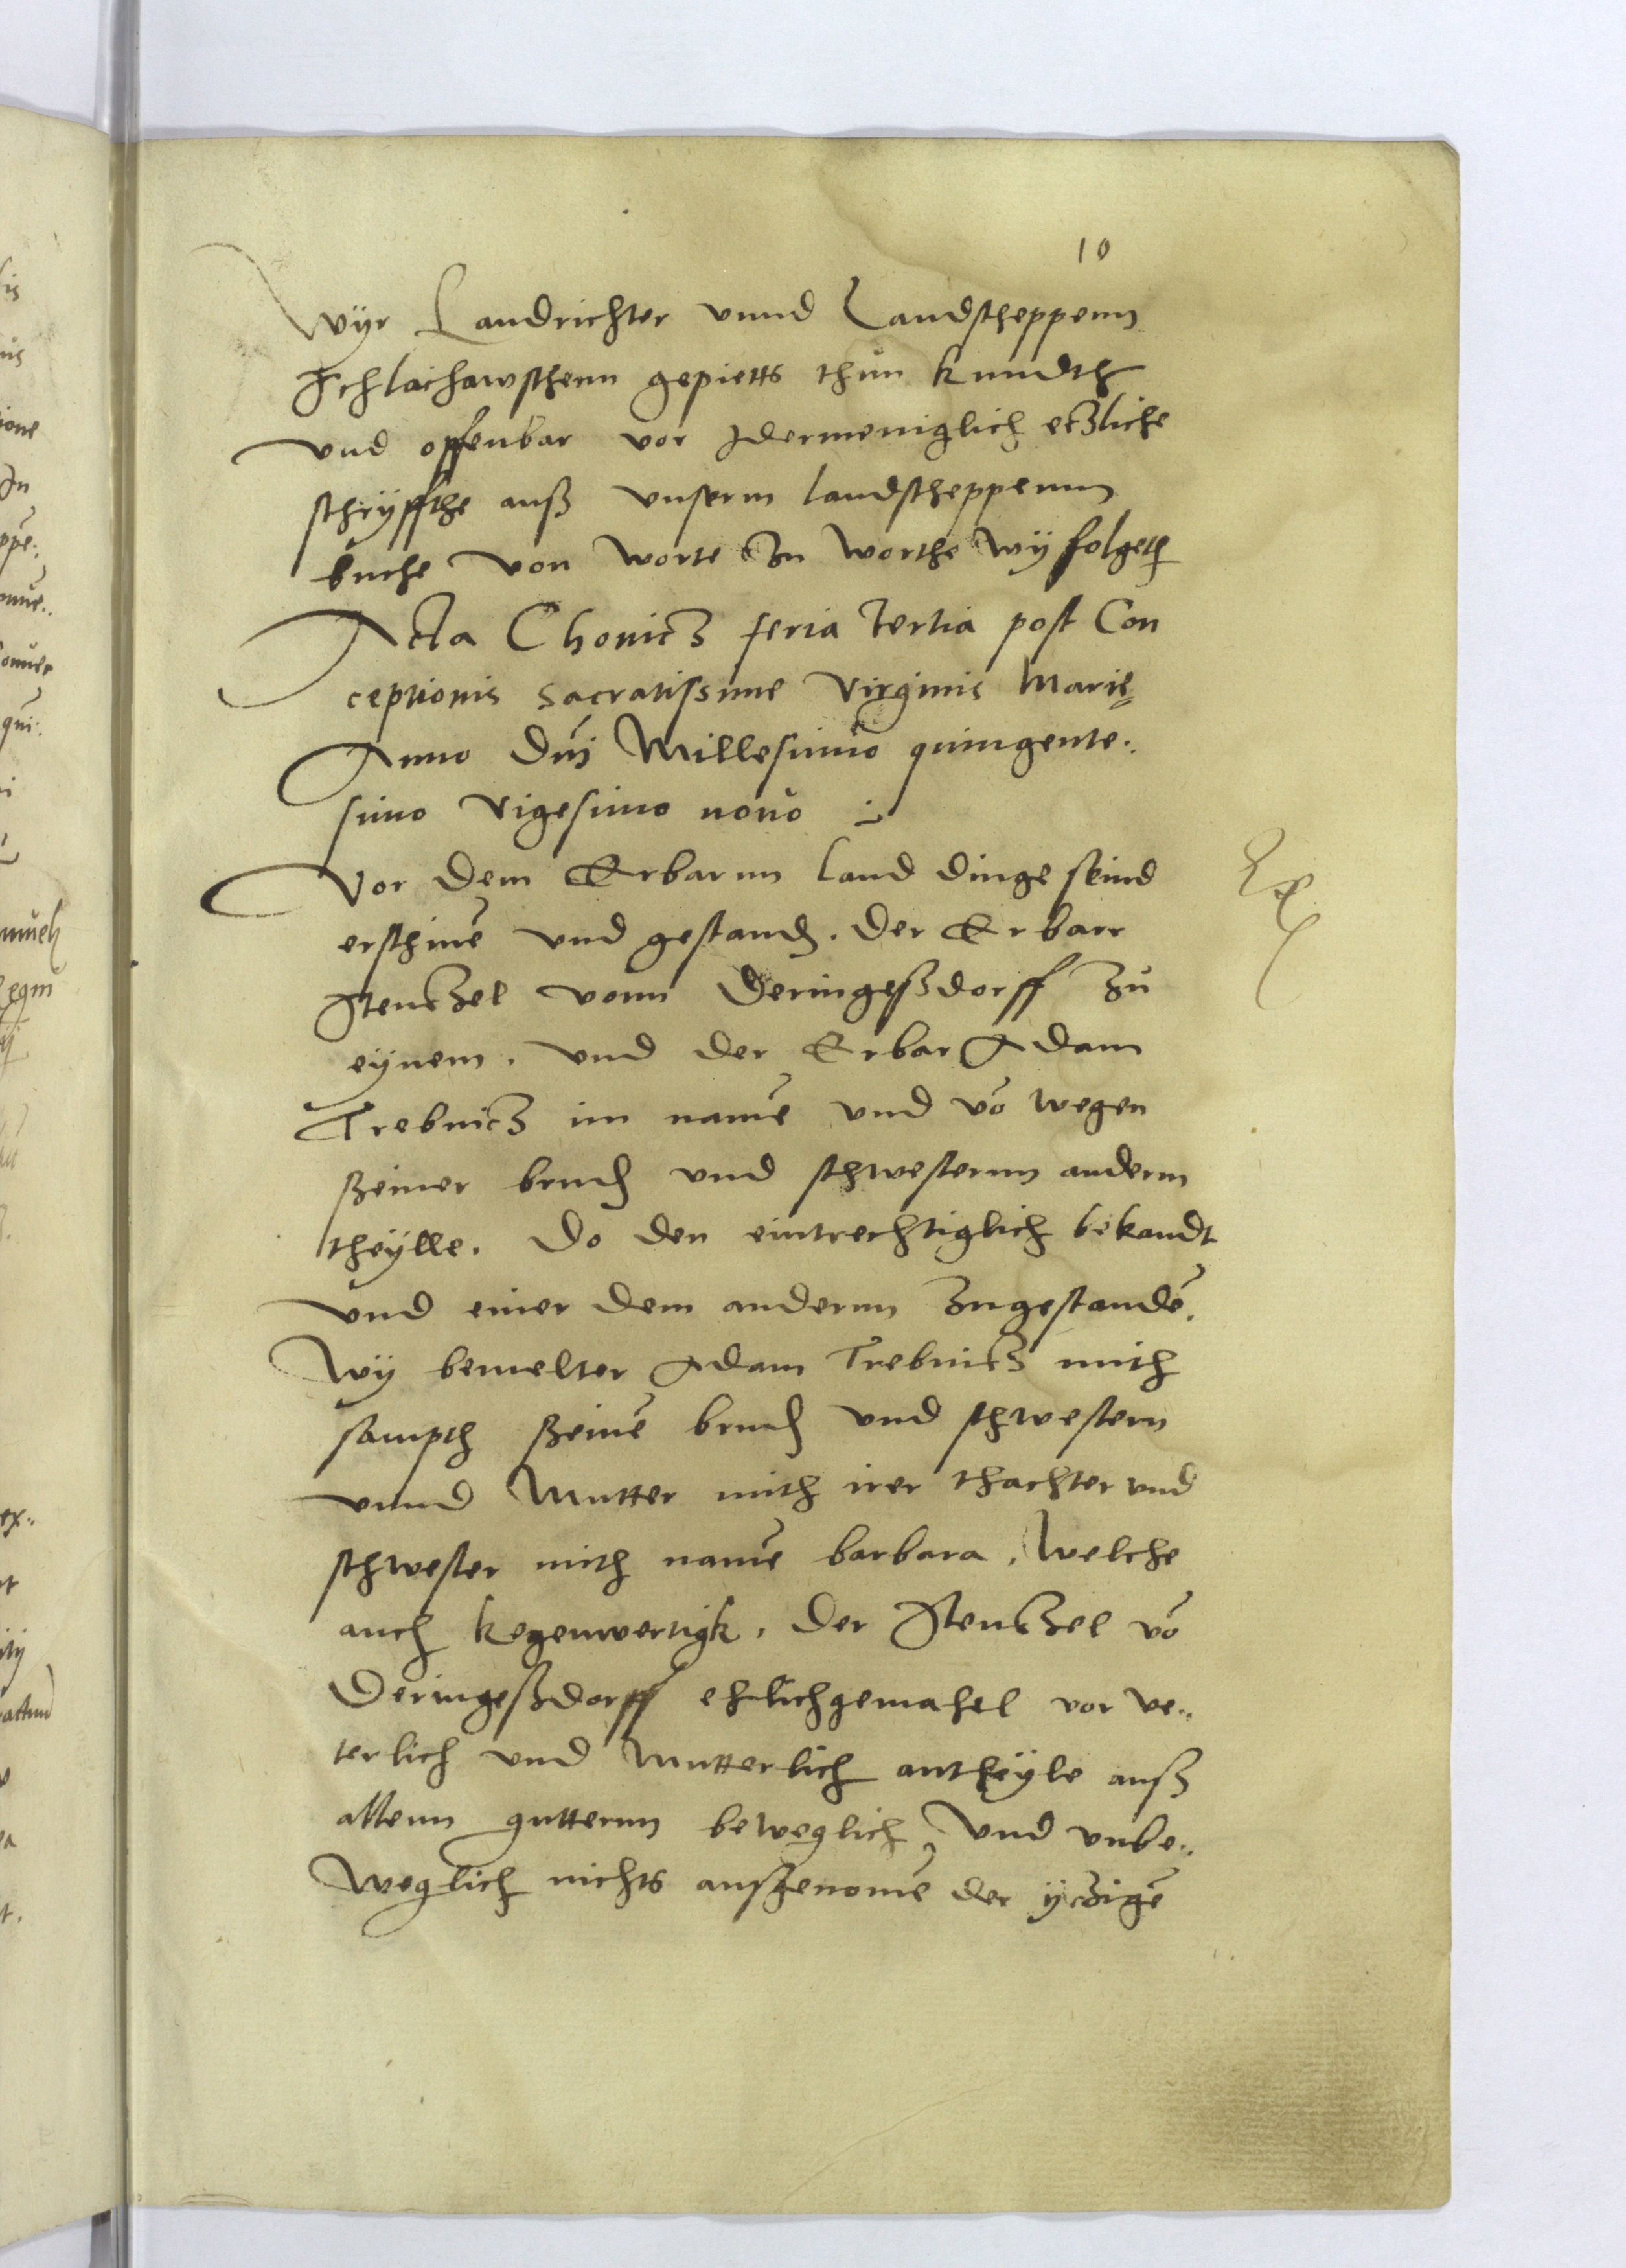 10
Wÿr Landrichter vnnd Landscheppenn
Schlachawschenn gepietts thun kundth
vnd offenbar vor Idermeniglich etzliche
schryffthe auß vnserm landscheppenn
buche von worte zu worthe wÿ folgeth
Acta Chonicz feria tertia post Con
ceptionis sacratissime virginis Marię
Anno Dnĩ Millesimo quingente..
simo vigesimo nono
Vor dem Erbarnn land dinge seind
erschinē vnd gestand. Der Erbarr
Stentzel vonn Deringeßdorff zu
eÿnem. vnd der Erbar Adam
Trebnicz im namē vnd vō wegen
ßeiner brud vnd schwesternn anderm
theÿlle. Do den eintrechtiglich bekandt
vnd einer dem andernn zugestandē.
Wÿ bemelter Adam Trebnicz mith
sampth ßeinē brud vnd schwestern
vnnd Mutter mith irer thachter vnd
schwester mith namē barbara. Welche
auch kegenwertigk. Der Stentzel vō
Deringeßdorff ehlichgemahel vor ve..
terlich vnd Mutterlich antheÿle auß
allenn gutternn beweglich, vnd vnbe..
weglich nichts außgenomē der ÿczigē